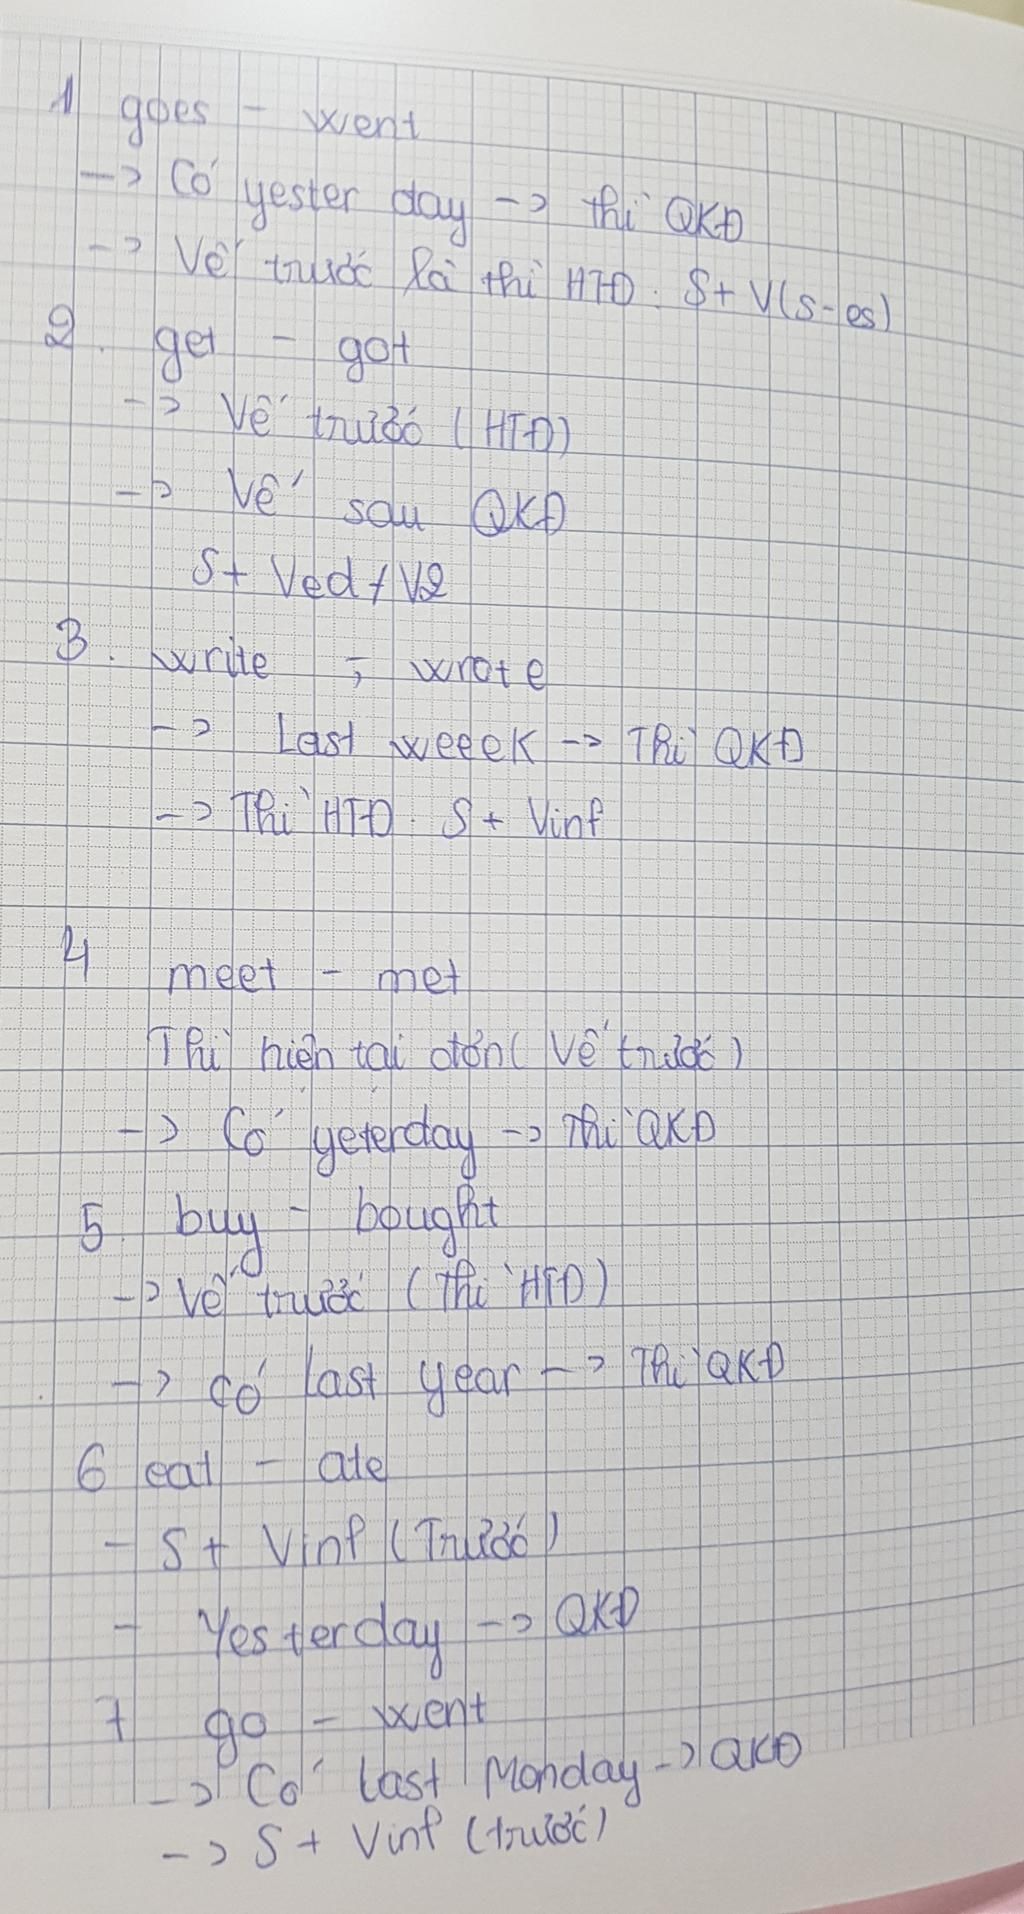 1 goes - went
-> Có yester day -> thì QKĐ
-> Vế trước là thì HTĐ. S + V(s-es)
2. get - got
-> Vế trước (HTĐ)
-> Vế sau QKĐ
S + Ved / V2
3. write ; wrote
-> Last weeek -> Thì QKĐ
-> Thì HTĐ. S + Vinf
4 meet - met
Thì hiện tại đơn (Vế trước)
-> Có yeterday -> Thì QKĐ
5. buy - bought
-> Vế trước (Thì HTĐ)
-> Có last year -> Thì QKĐ
6 eat - ate
- S + Vinf (Trước)
- Yesterday -> QKĐ
7 go - went
-> Có last Monday -> QKĐ
-> S + Vinf (trước)